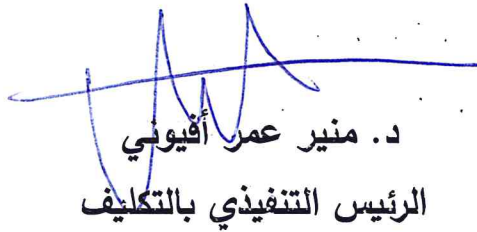 د. منير عمر أفيوني
الرئيس التنفيذي بالتكليف